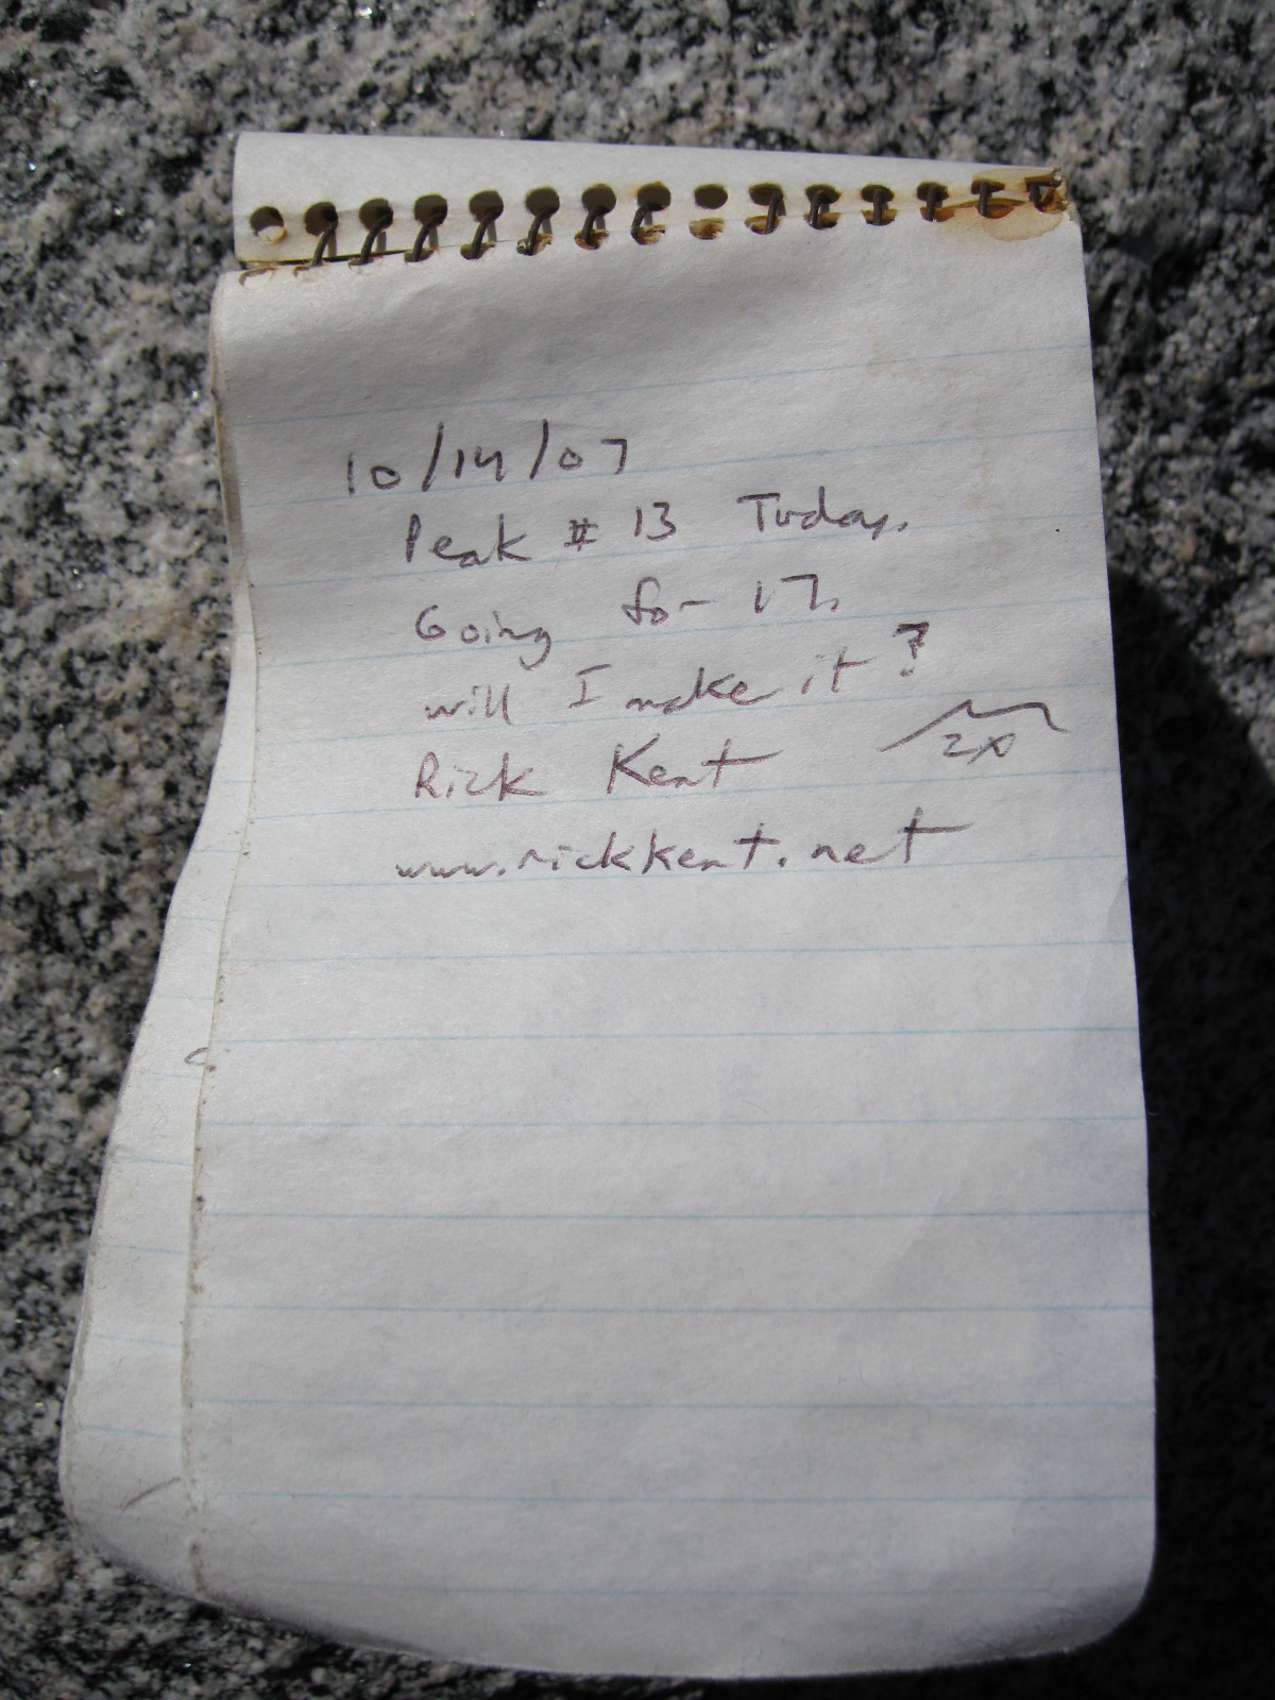 10/14/07
Peak # 13 Today.
Going for 17.
will I make it?
Rick Kent 2x
www.rickkent.net